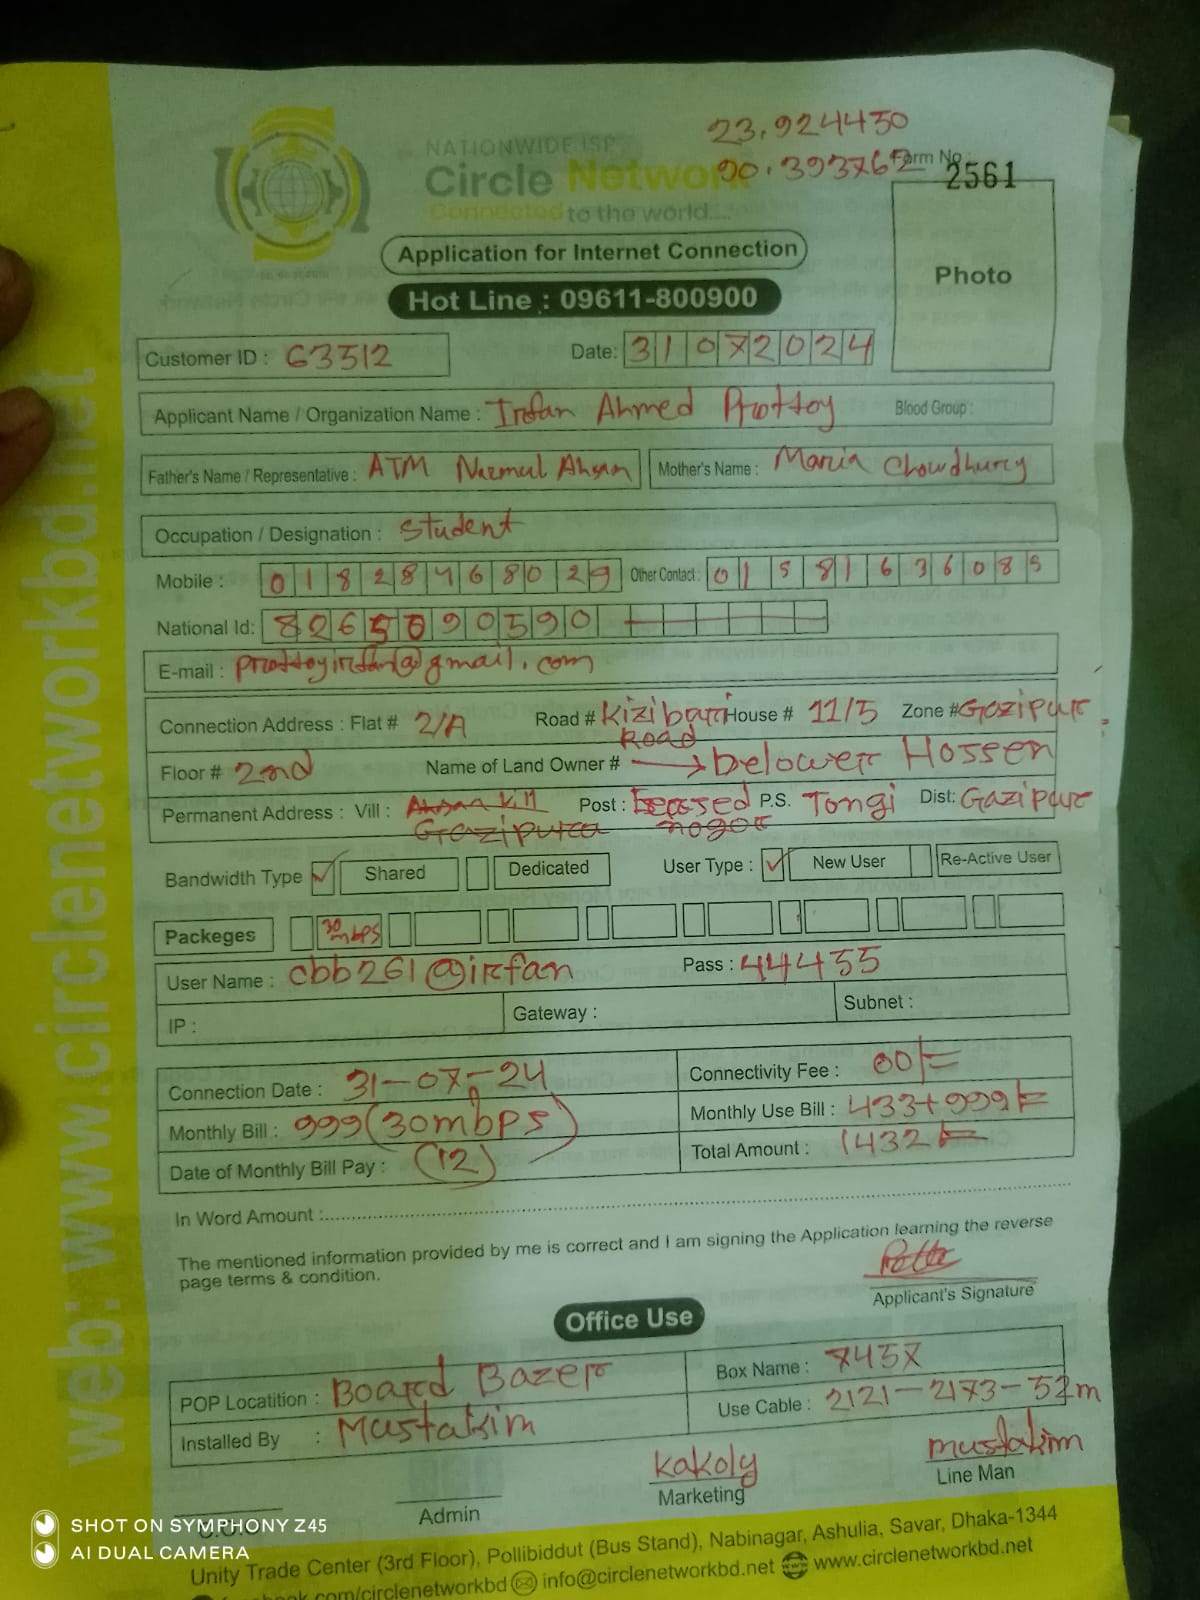 23.924430
90.393762
NATIONWIDE ISP
Circle Network
Connected to the world...
Form No 2561
Application for Internet Connection
Photo
Hot Line : 09611-800900
Customer ID : G3512 Date: 31072024
Applicant Name / Organization Name : Irfan Ahmed Prottoy Blood Group :
Father's Name / Representative : ATM Nazmul Ahsan Mother's Name : Maria Chowdhury
Occupation / Designation : Student
Mobile : 01828468029 Other Contact : 01581636085
National Id: 8265090590
E-mail : prottoyirfan@gmail.com
Connection Address : Flat # 2/A Road # Kizibari Road House # 11/5 Zone # Gazipur
Floor # 2nd Name of Land Owner # → Delower Hossen
Permanent Address : Vill : Gazipura Post : nogor P.S. Tongi Dist: Gazipur
Bandwidth Type ✓ Shared Dedicated User Type : ✓ New User Re-Active User
Packeges 30 mbps
User Name : cbb261@irfan Pass : 44455
IP : Gateway : Subnet :
Connection Date : 31-07-24 Connectivity Fee : 00/=
Monthly Bill : 999 (30mbps) Monthly Use Bill : 433+999/=
Date of Monthly Bill Pay : (12) Total Amount : 1432/=
In Word Amount :
The mentioned information provided by me is correct and I am signing the Application learning the reverse
page terms & condition.
Applicant's Signature
Office Use
POP Locatition : Board Bazer Box Name : 7457
Installed By : Mustakim Use Cable : 2121-2173-52m
kakoly mustakim
Admin Marketing Line Man
Unity Trade Center (3rd Floor), Pollibiddut (Bus Stand), Nabinagar, Ashulia, Savar, Dhaka-1344
.com/circlenetworkbd info@circlenetworkbd.net www.circlenetworkbd.net
web: www.circlenetworkbd.net
SHOT ON SYMPHONY Z45
AI DUAL CAMERA